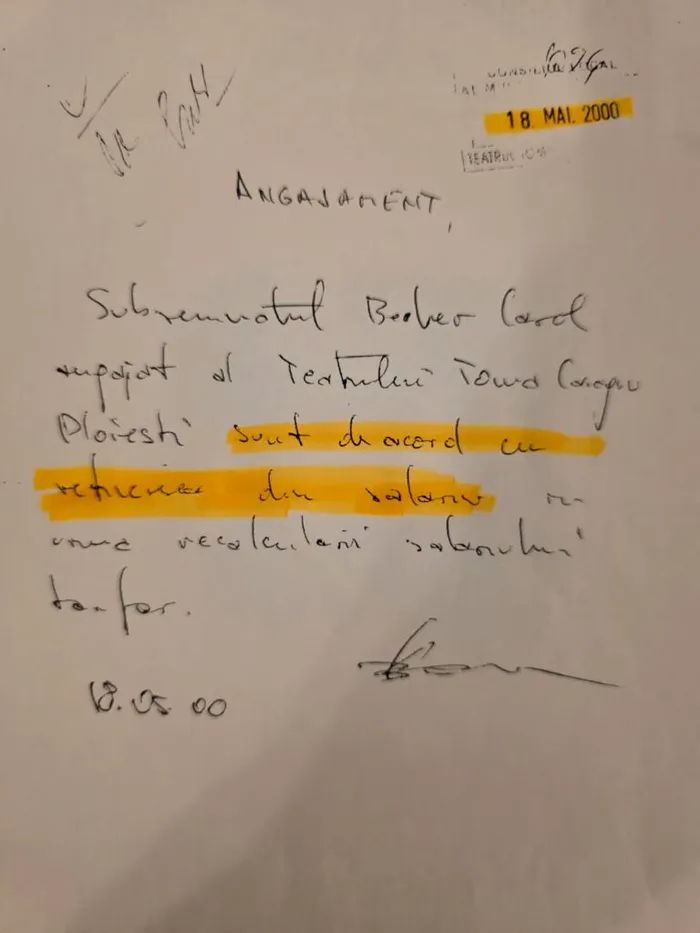 18. MAI. 2000
TEATRUL
ANGAJAMENT,
Subsemnatul Carol
angajat al Teatrului Toma Caragiu
Ploiesti sunt de acord cu
retinerea din salariu in
urma recalcularii salariului
tarifar.
18.05.00